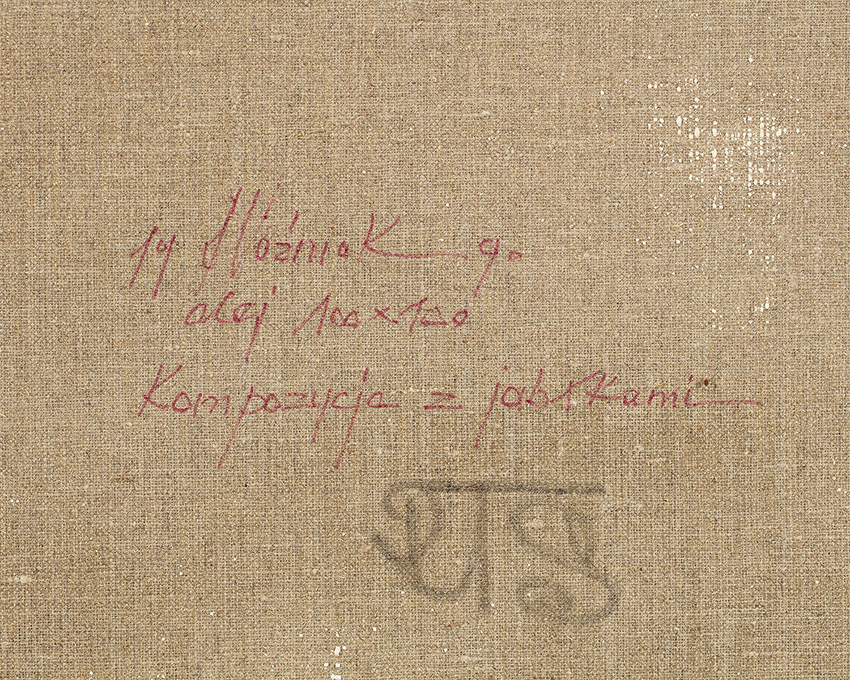 19 Woźniak 90
olej 100x120
Kompozycja z jabłkami